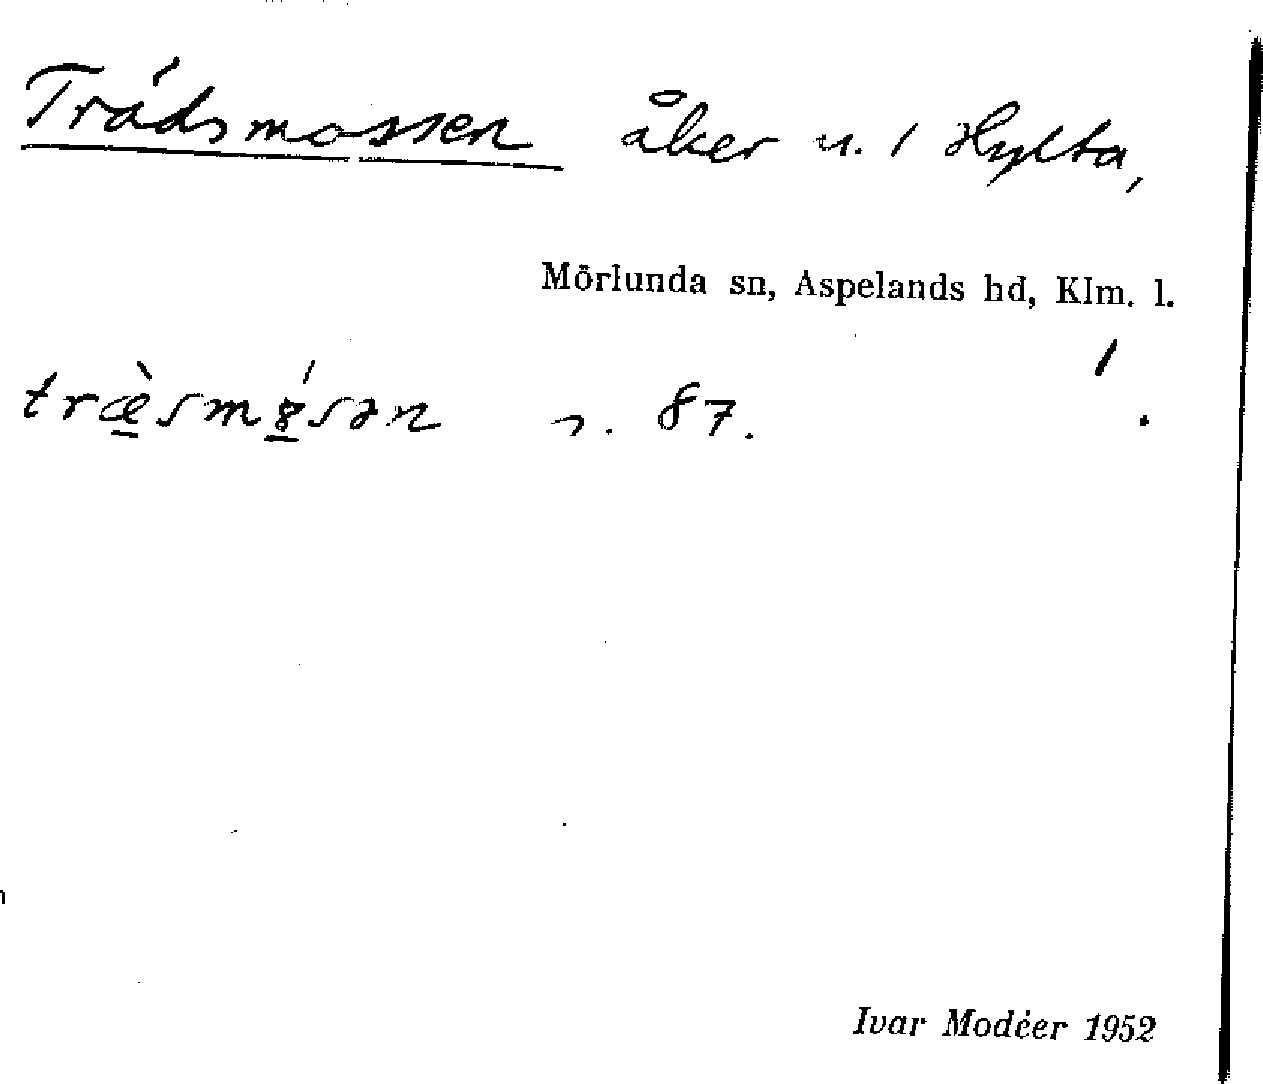 Trädsmossen åker u. / Hylta,
Mörlunda sn, Aspelands hd, Klm. l.
træ̀smɞ́sən s. 87.
Ivar Modéer 1952